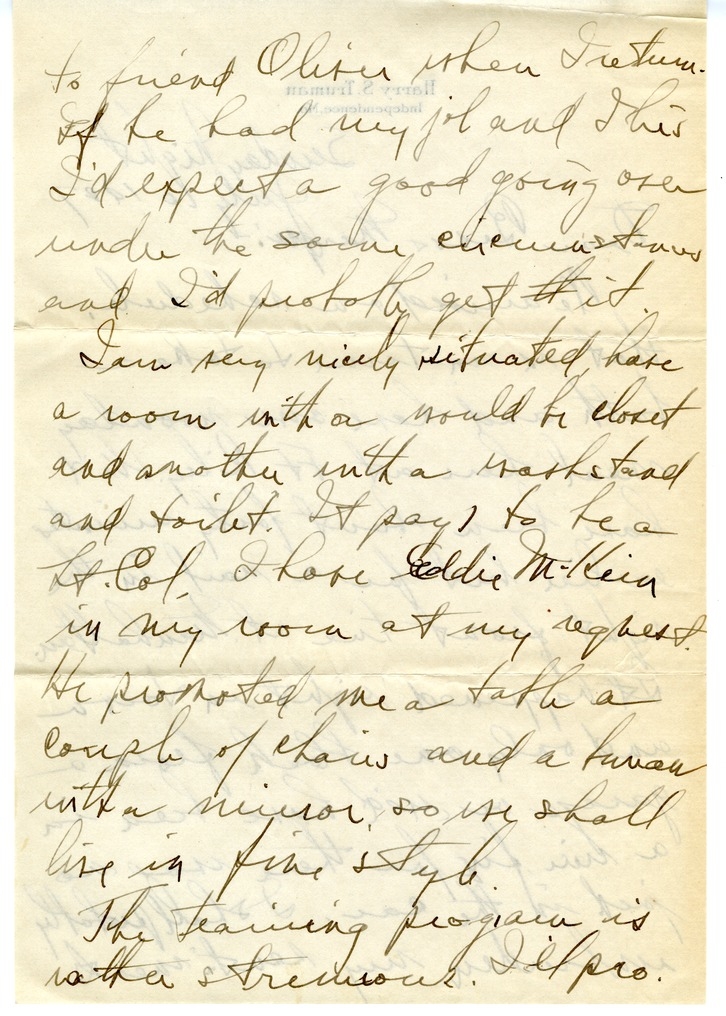 to friend Oliver when I return.
If he had my job and I his
I'd expect a good going over
under the same circumstances
and I'd probably get it.
I am very nicely situated, have
a room with a would be closet
and another with a washstand
and toilet. It pays to be a
Lt. Col. I have Eddie McKim
in my room at my request.
He promoted me a table a
couple of chairs and a bureau
with a mirror, so we shall
live in fine style.
The training program is
rather strenuous. I'll pro.
Harry S. Truman
Independence, Mo.